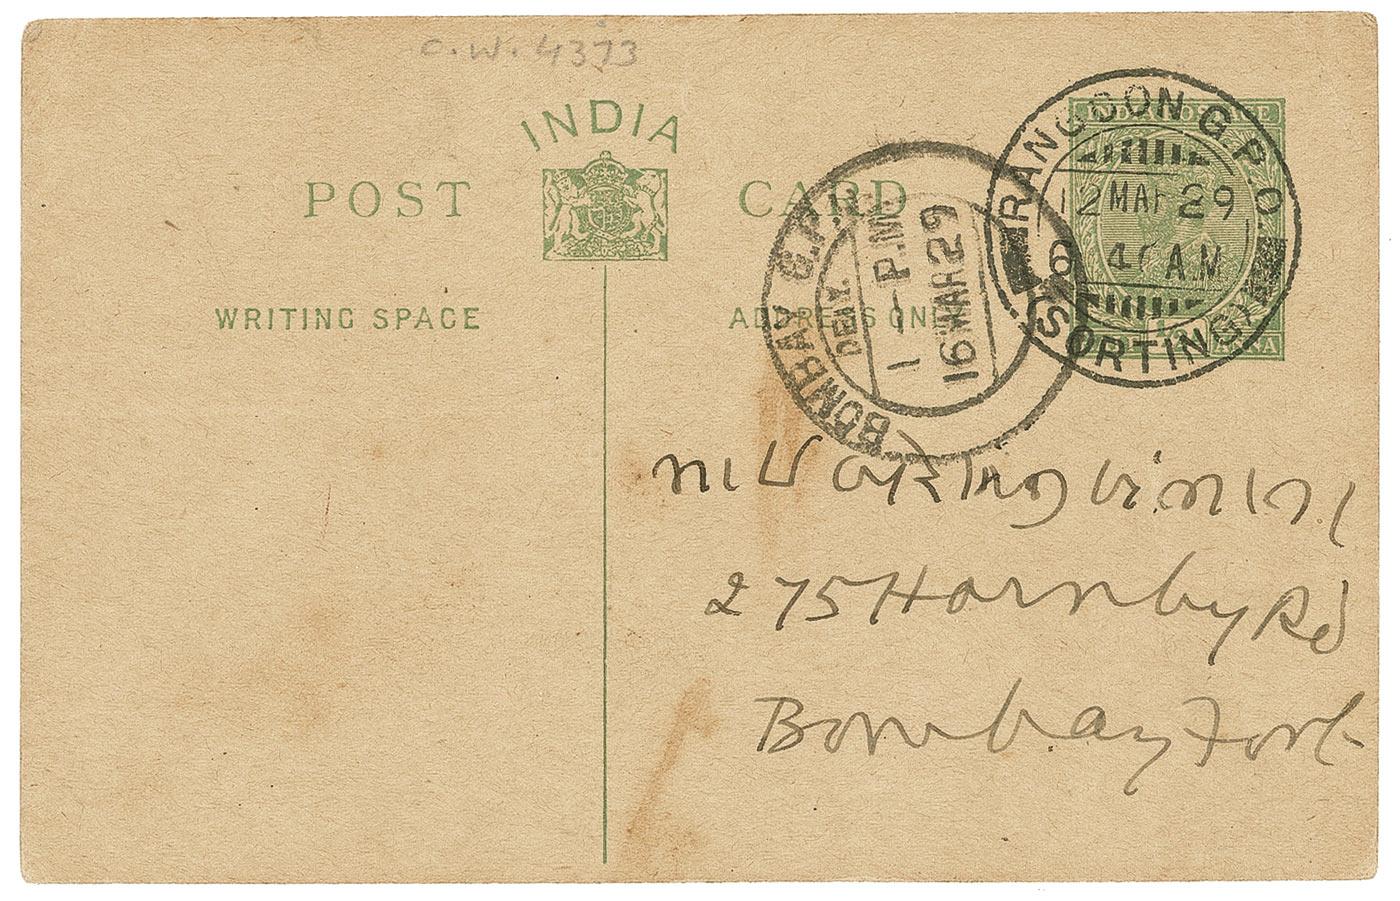 C.W. 4373
INDIA
POST CARD
WRITING SPACE
ADDRESS ONLY
INDIA POSTAGE
HALF ANNA
RANGOON G.P.O.
12 MAR 29
6 40 A.M
(SORTING)
BOMBAY G.P.O.
DELY.
1 - P.M.
16 MAR 29
275 Hornby Rd
Bombay Fort